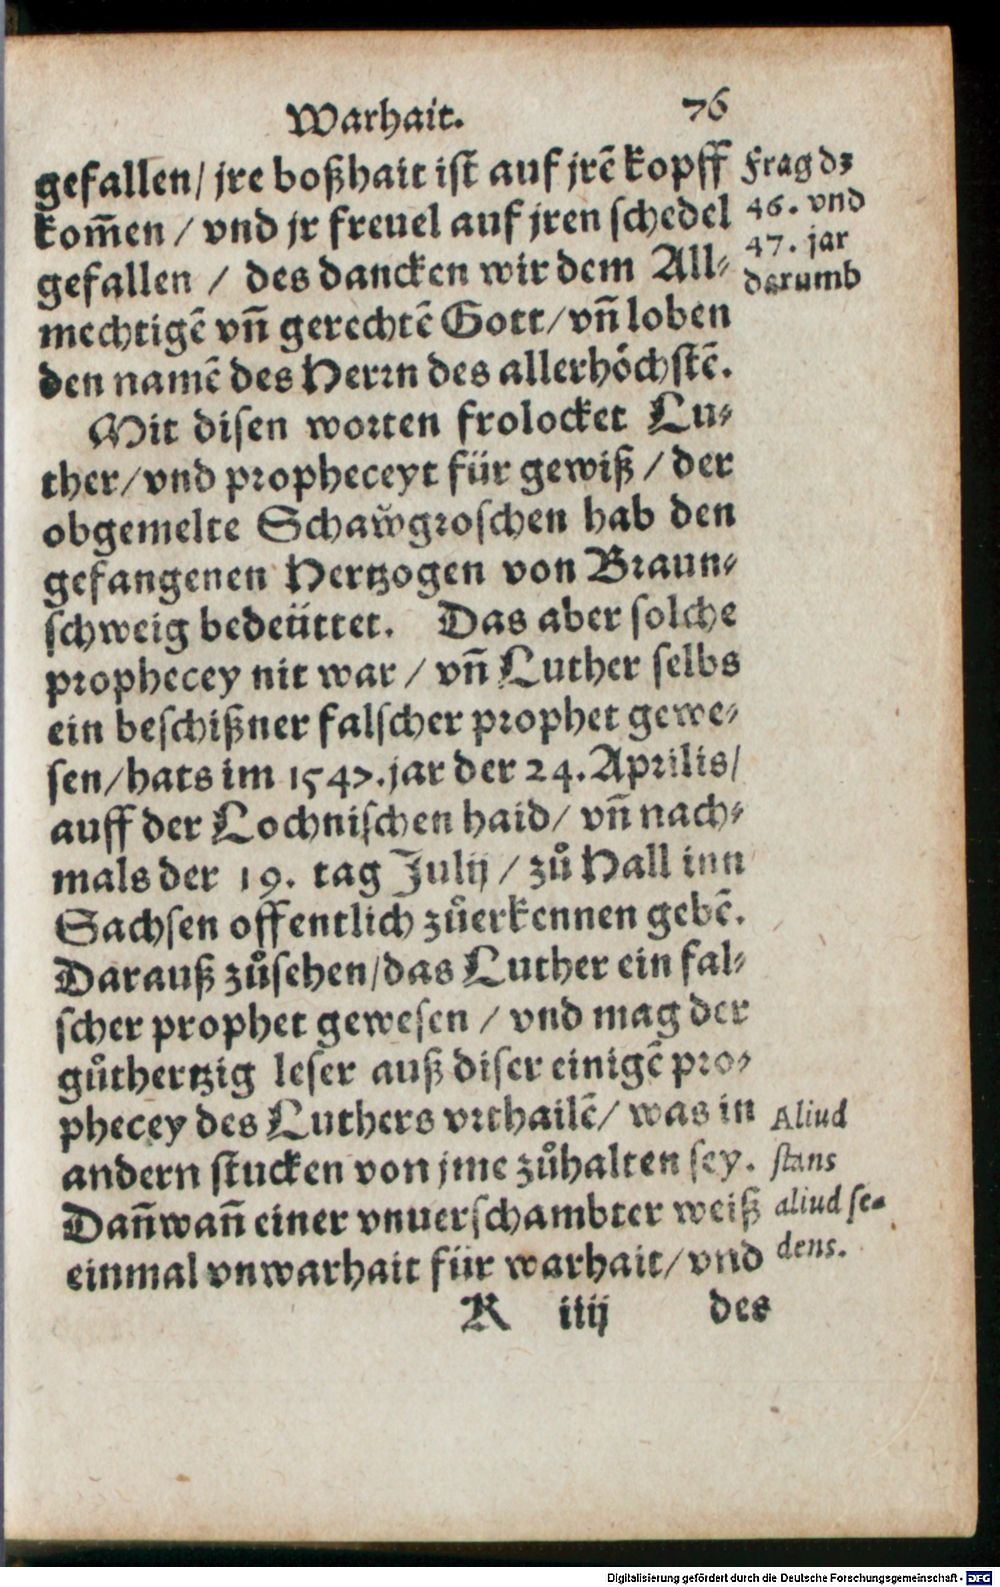 Warhait. 76
gefallen/ jre boßhait ist auf jrē kopff
kom̄en / vnd jr freuel auf jren schedel
gefallen / des dancken wir dem All⸗
mechtigē vn̄ gerechtē Gott/ vn̄ loben
den namē des Herrn des allerhöchstē.
Mit disen worten frolocket Lu⸗
ther/ vnd propheceyt für gewiß / der
obgemelte Schaẘgroschen hab den
gefangenen Hertzogen von Braun⸗
schweig bedeüttet. Das aber solche
prophecey nit war / vn̄ Luther selbs
ein beschißner falscher prophet gewe⸗
sen/ hats im 1547. jar der 24. Aprilis/
auff der Lochnischen haid/ vn̄ nach⸗
mals der 19. tag Julij / zů Hall inn
Sachsen offentlich zůerkennen gebē.
Darauß zůsehen/ das Luther ein fal⸗
scher prophet gewesen / vnd mag der
gůthertzig leser auß diser einigē pro⸗
phecey des Luthers vrthailē/ was in
andern stucken von jme zůhalten sey.
Dan̄ wan̄ einer vnuerschambter weiß
einmal vnwarhait für warhait/ vnd
K iiij des
Frag dz
46. vnd
47. jar
darumb
Aliud
stans
aliud se⸗
dens.
Digitalisierung gefördert durch die Deutsche Forschungsgemeinschaft - DFG